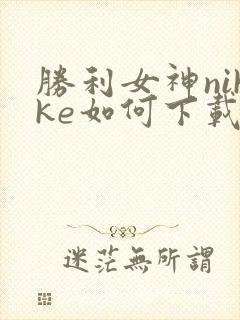 勝利女神nik
ke如何下載
迷茫無所謂